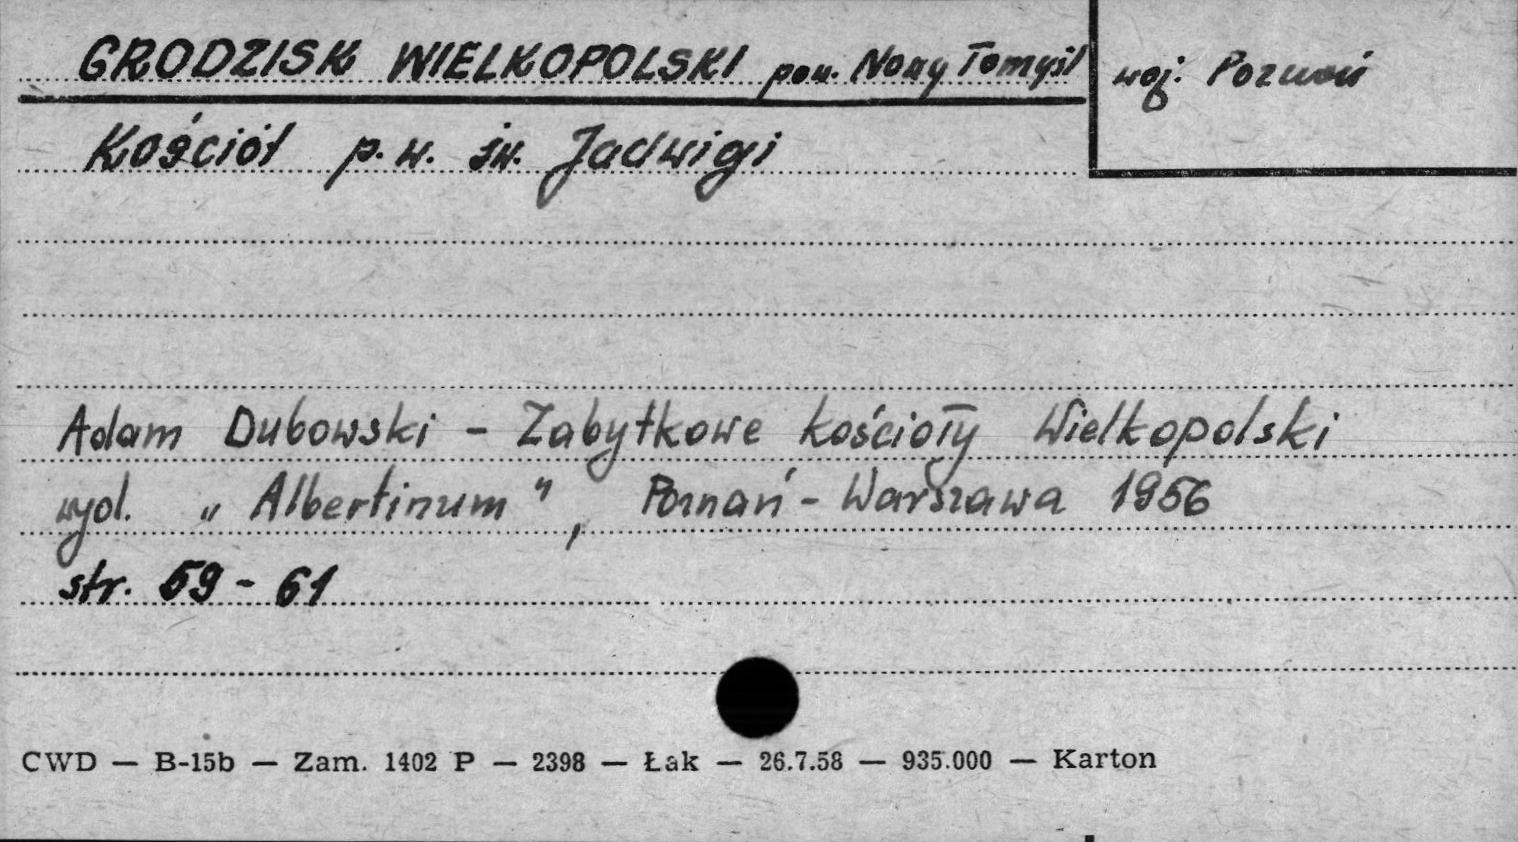 GRODZISK WIELKOPOLSKI pow. Nowy Tomyśl
woj. Poznań
Kościół p.w. św. Jadwigi
Adam Dubowski - Zabytkowe kościoły Wielkopolski
wyd. „Albertinum", Poznań - Warszawa 1956
str. 59 - 61
CWD — B-15b — Zam. 1402 P — 2398 — Łak — 26.7.58 — 935.000 — Karton